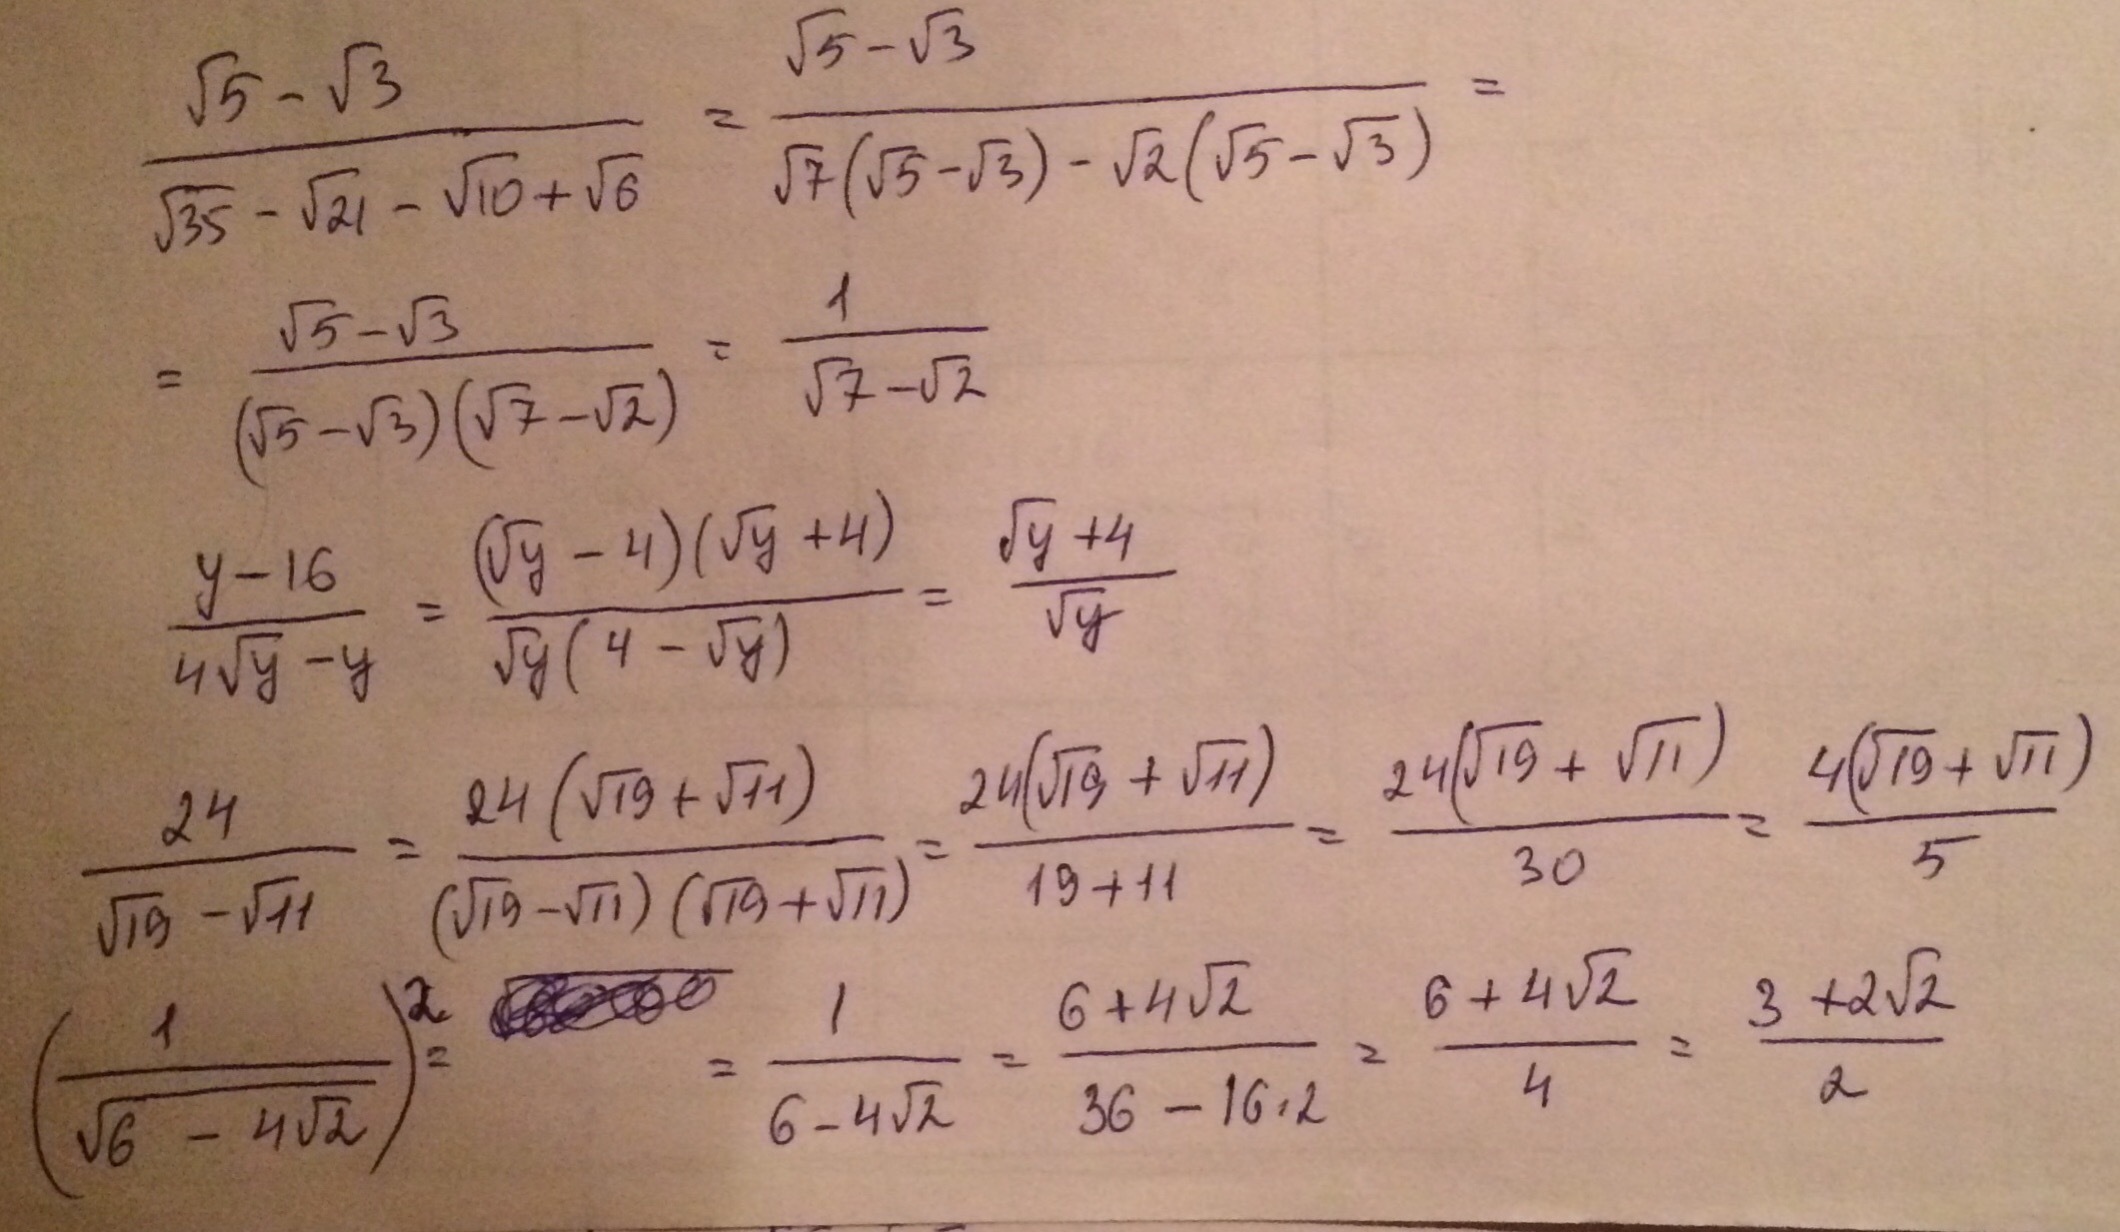 (√5 − √3)/(√35 − √21 − √10 + √6) = (√5 − √3)/(√7(√5 − √3) − √2(√5 − √3)) =
= (√5 − √3)/((√5 − √3)(√7 − √2)) = 1/(√7 − √2)
(y − 16)/(4√y − y) = ((√y − 4)(√y + 4))/(√y(4 − √y)) = (√y + 4)/√y
24/(√19 − √11) = (24(√19 + √11))/((√19 − √11)(√19 + √11)) = (24(√19 + √11))/(19 + 11) = (24(√19 + √11))/30 = (4(√19 + √11))/5
(1/√(6 − 4√2))² = = 1/(6 − 4√2) = (6 + 4√2)/(36 − 16·2) = (6 + 4√2)/4 = (3 + 2√2)/2